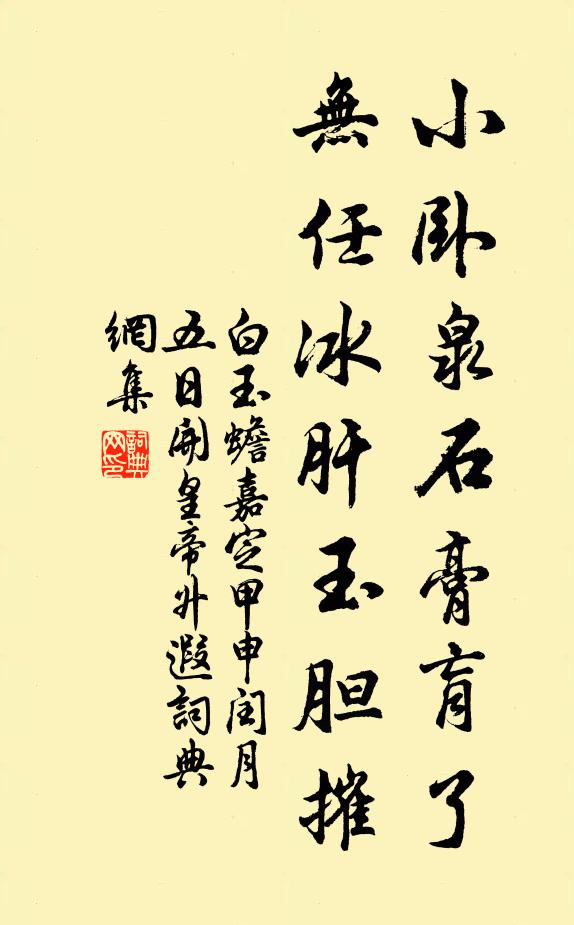 小卧泉石膏肓了
無任冰肝玉胆摧
白玉蟾嘉定甲申閏月
五日聞皇帝升遐詞典
網集
詞典網印